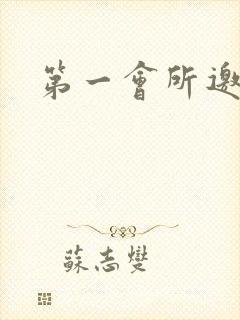 第一會所邀
蘇志燮